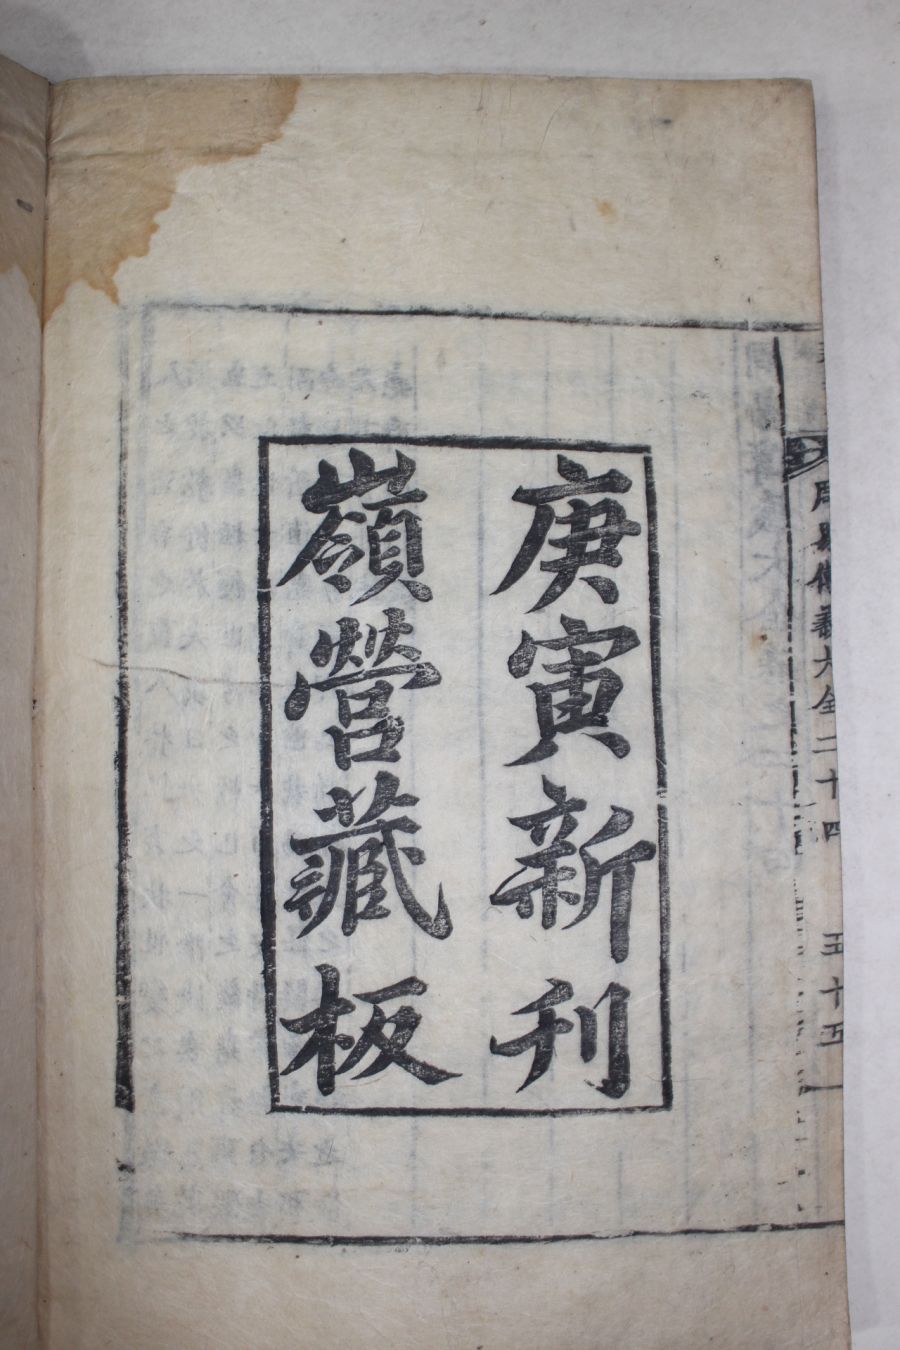 庚寅新刊
嶺營藏板
周易傳義大全二十四
五十五